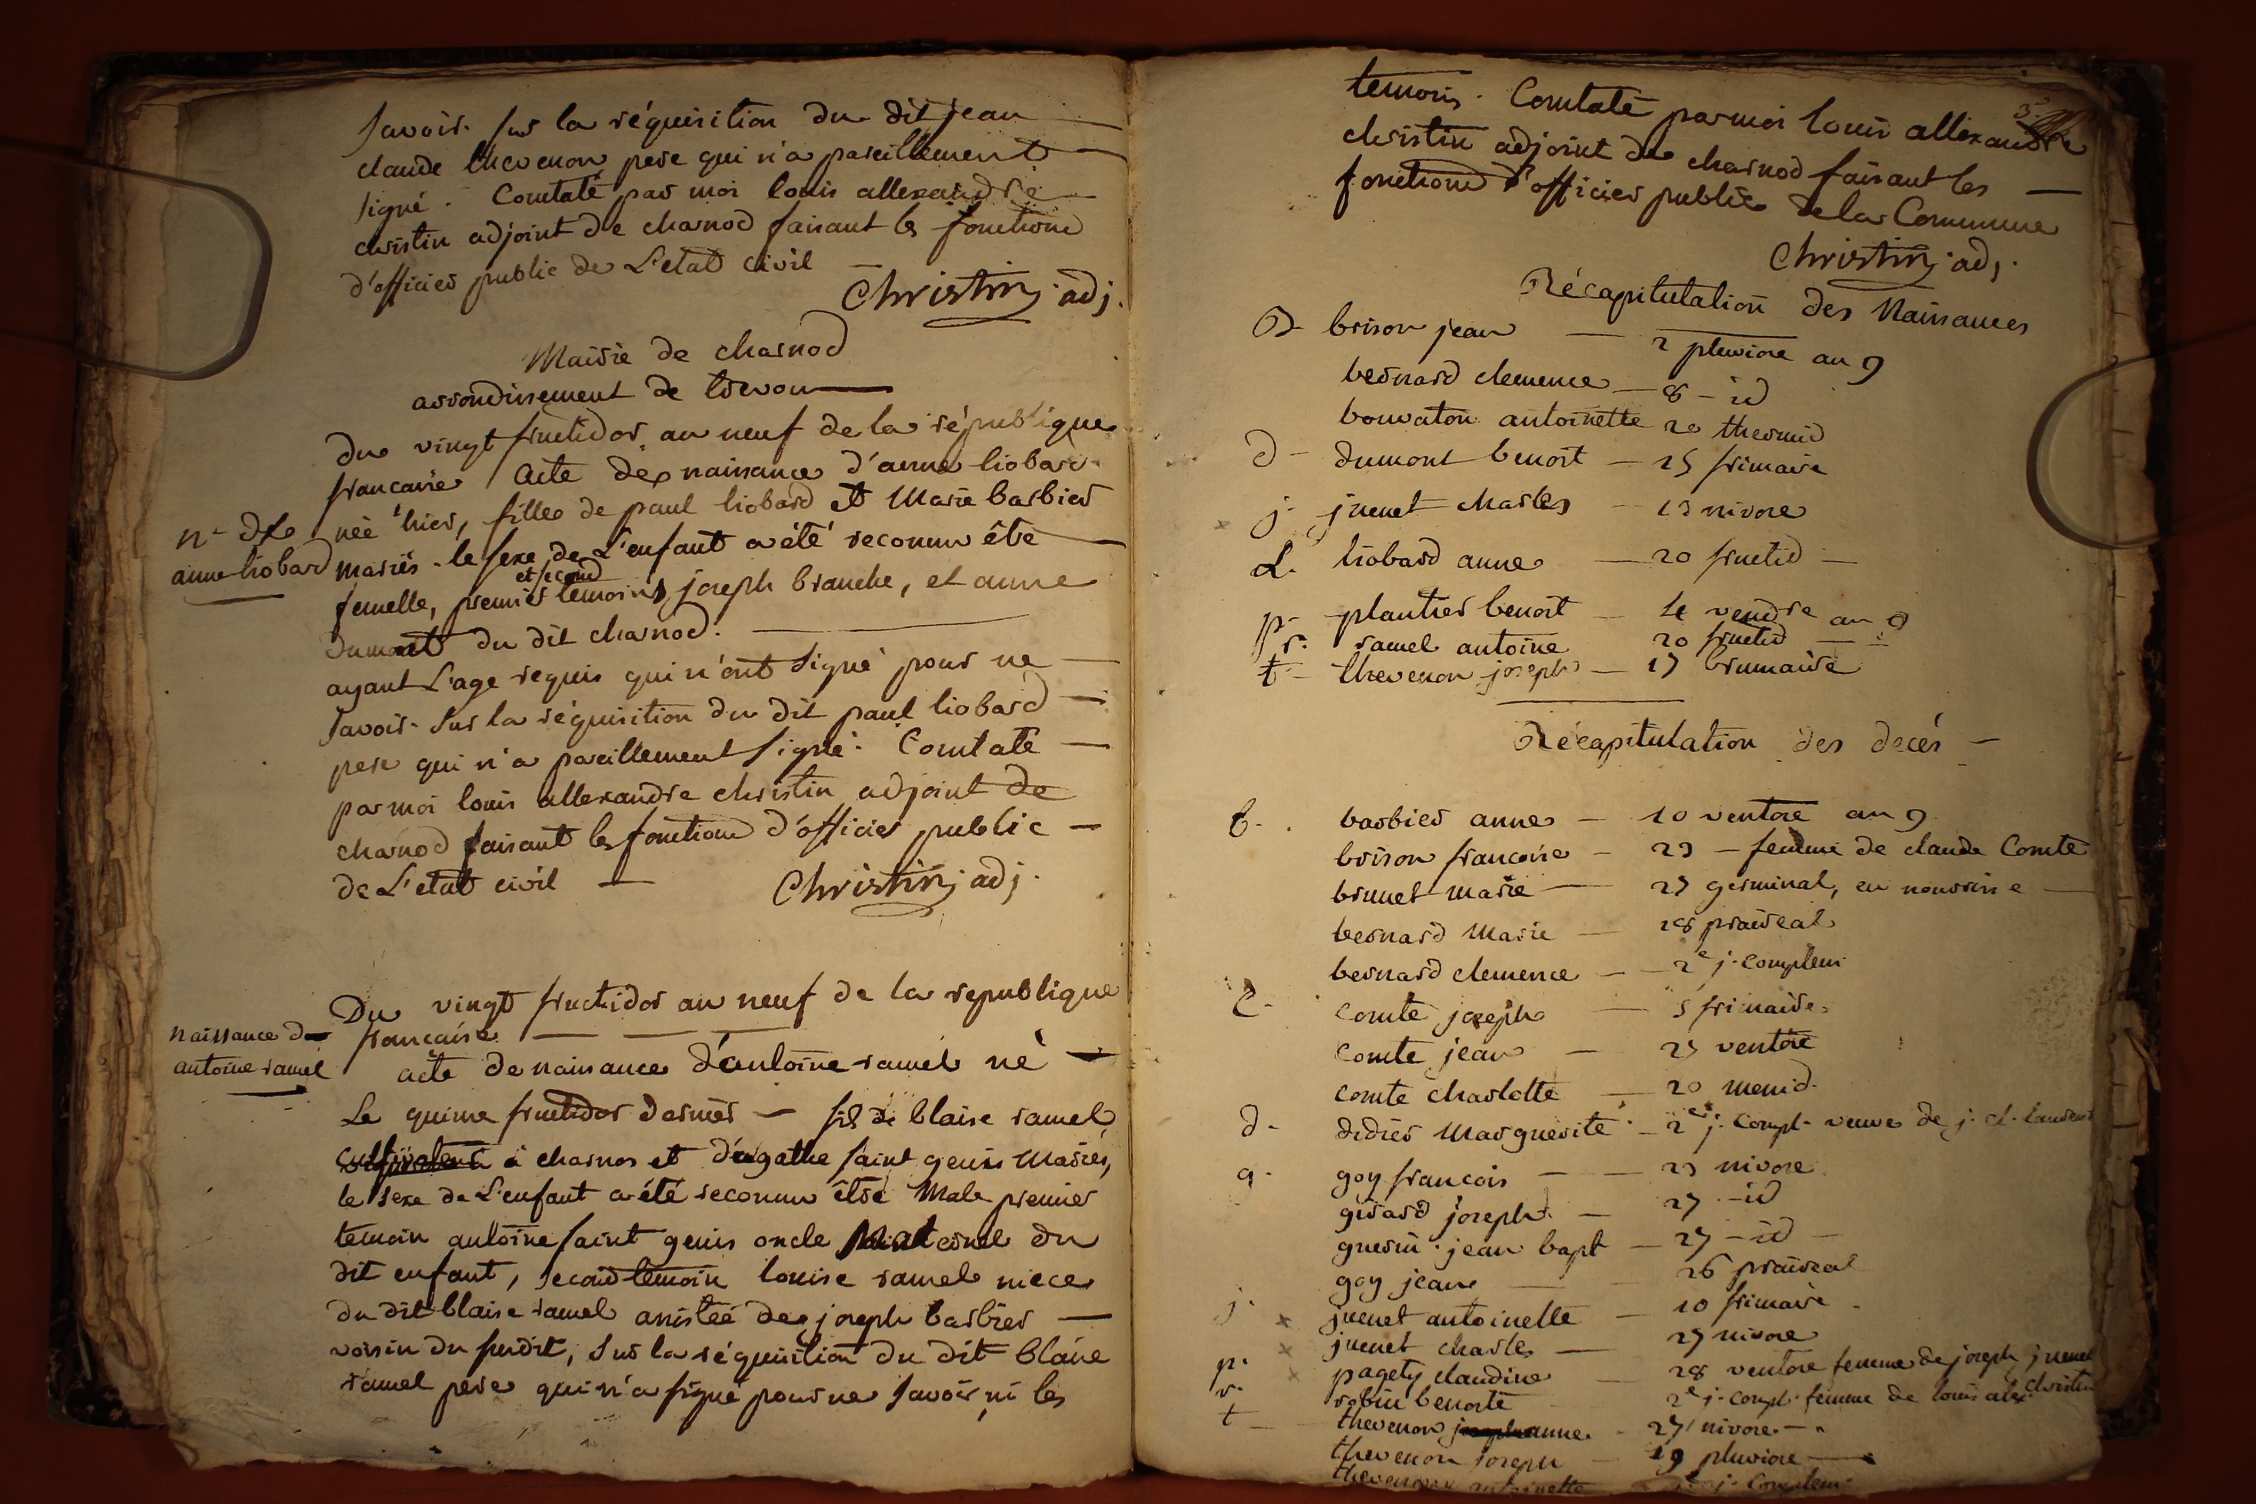 savoir. sur la réquisition du dit jean
claude thevenon pere qui n'a pareillement
signé. Constaté par moi louis allexandre
christin adjoint de charnod faisant les fonctions
d'officier public de L'etat civil
Christin adj.
Mairie de charnod
arrondissement de
Du vingt fructidor an neuf de la république
francaise acte de naissance d'anne liobard
née hier, fille de paul liobard et Marie barbier
n.ce de
anne liobard
mariés. le sexe de L'enfant a été reconnu être
femelle, premier et second temoins joseph branche, et anne
dumont du dit charnod.
ayant L'age requis qui n'ont signé pour ne
savoir. sur la réquisition du dit paul liobard
pere qui n'a pareillement signé. Constaté
par moi louis allexandre christin adjoint de
charnod faisant les fonctions d'officier public
de L'etat civil
Christin adj.
Du vingt fructidor an neuf de la republique
naissance de
antoine ramel
francaise
acte de naissance d'antoine ramel né
Le quinze fructidor dernier fils de blaise ramel
cultivateur à charnos et d'agathe saint genis mariés,
le sexe de L'enfant a été reconnu être Male premier
temoin antoine saint genis oncle maternel du
dit enfant, second temoin louise ramel niece
du dit blaise ramel assistée de joseph barbier
voisin du susdit, sur la réquisition du dit blaise
ramel pere qui n'a signé pour ne savoir ni les
temoins. Constaté par moi louis allexandre
christin adjoint de charnod faisant les
fonctions d'officier public de la Commune
Christin adj.
Récapitulation des Naissances
B brison jean — 2 pluviose an 9
bernard clemence — 8 - id
bonvaton antoinette 20 thermid
d - dumont benoit — 25 frimaire
j. juenet charles — 13 nivose
L. liobard anne — 20 fructid —
p - plantier benoit — 4 vendre an 9
r. ramel antoine 20 fructid —
t - thevenon joseph — 17 brumaire
Récapitulation des decés —
b. barbier anne — 10 ventose an 9
brison francoise — 23 — femme de claude Comte
brunet marie — 27 germinal, en nourrisse
bernard Marie — 28 praireal
bernard clemence — 2e j. complem
C - comte joseph — 5 frimaire
comte jean — 25 ventose
comte charlotte — 20 messid.
d - didier Marguerite — 2e j. compl. veuve de j. cl. laurent
g - goy francois — 23 nivose
girard joseph — 27 - id
guerin jean bapt — 27 - id —
goy jean — 26 praireal
j. juenet antoinette — 10 frimaire
x juenet charles — 27 nivose
p. x pagety claudine — 28 ventose femme de joseph juenet
r. robin benoite 2e j. compl. femme de louis alex christin
t — thevenon joseph anne. 27 nivose
thevenon joseph — 19 pluviose
thevenon antoinette j. Complem.